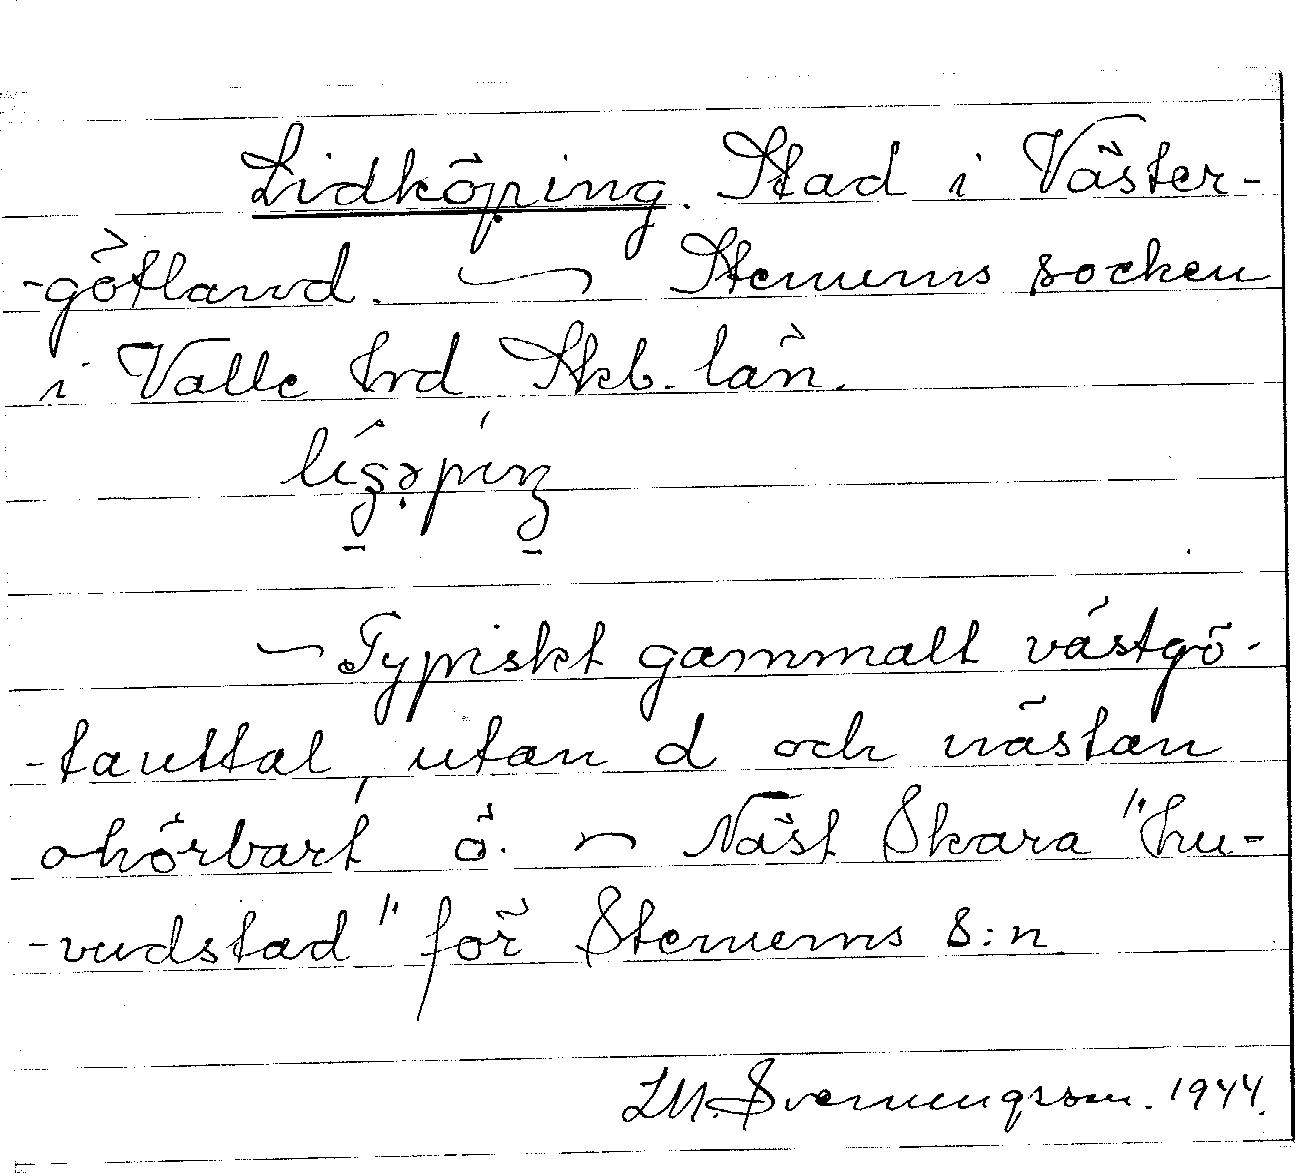 Lidköping. Stad i Väster-
-götland. — Stenums socken
i Valle hrd Skb. län.
— Typiskt gammalt västgö-
-tauttal, utan d och nästan
ohörbart ö. — Näst Skara "hu-
-vudstad" för Stenums s:n
L.M. Svenungsson. 1944.